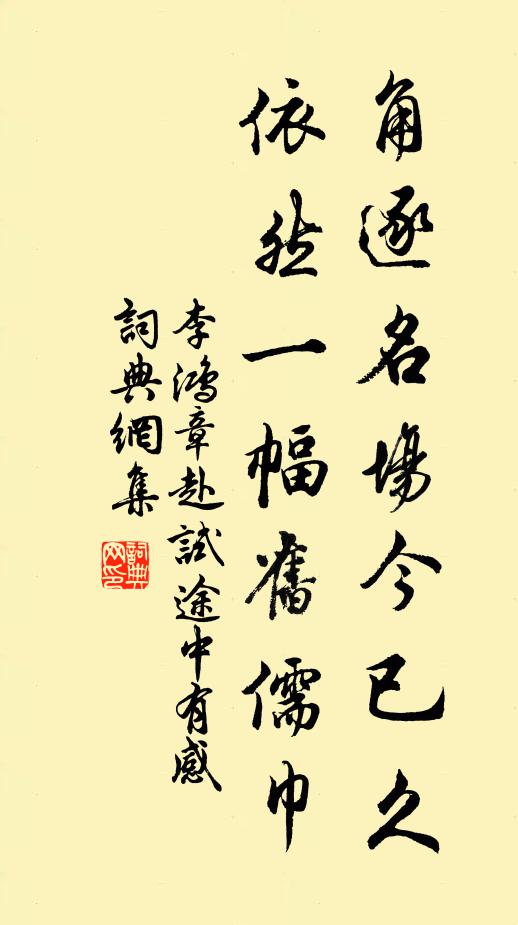 角逐名場今已久
依然一幅舊儒巾
李鴻章赴試途中有感
詞典網集
詞典
网印